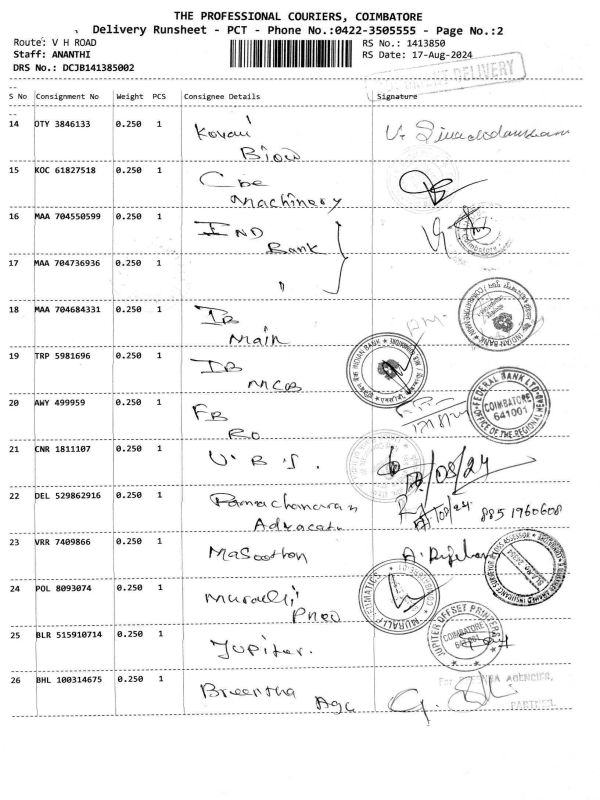 THE PROFESSIONAL COURIERS, COIMBATORE
Delivery Runsheet - PCT - Phone No.:0422-3505555 - Page No.:2
Route: V H ROAD
RS No.: 1413850
Staff: ANANTHI
RS Date: 17-Aug-2024
DRS No.: DCJB141385002
DELIVERY
S No Consignment No Weight PCS Consignee Details Signature
14 OTY 3846133 0.250 1 Kovai
15 KOC 61827518 0.250 1 Cbe
Machinery
16 MAA 704550599 0.250 1 IND
Bank
17 MAA 704736936 0.250 1 "
18 MAA 704684331 0.250 1 IB
Main
INDIAN BANK
19 TRP 5981696 0.250 1 IB
MCB
INDIAN BANK
20 AWY 499959 0.250 1 FB
RO
FEDERAL BANK LTD
COIMBATORE
641001
OFFICE OF THE REGIONAL HEAD
21 CNR 1811107 0.250 1 U.B.I.
/08/24
22 DEL 529862916 0.250 1 Ramachandran
8851960608
23 VRR 7409866 0.250 1
24 POL 8093074 0.250 1 Muralli
Pneo
25 BLR 515910714 0.250 1 Jupiter.
JUPITER OFFSET PRINTERS
COIMBATORE
641 001
26 BHL 100314675 0.250 1
For AGENCIES,
PARTNER